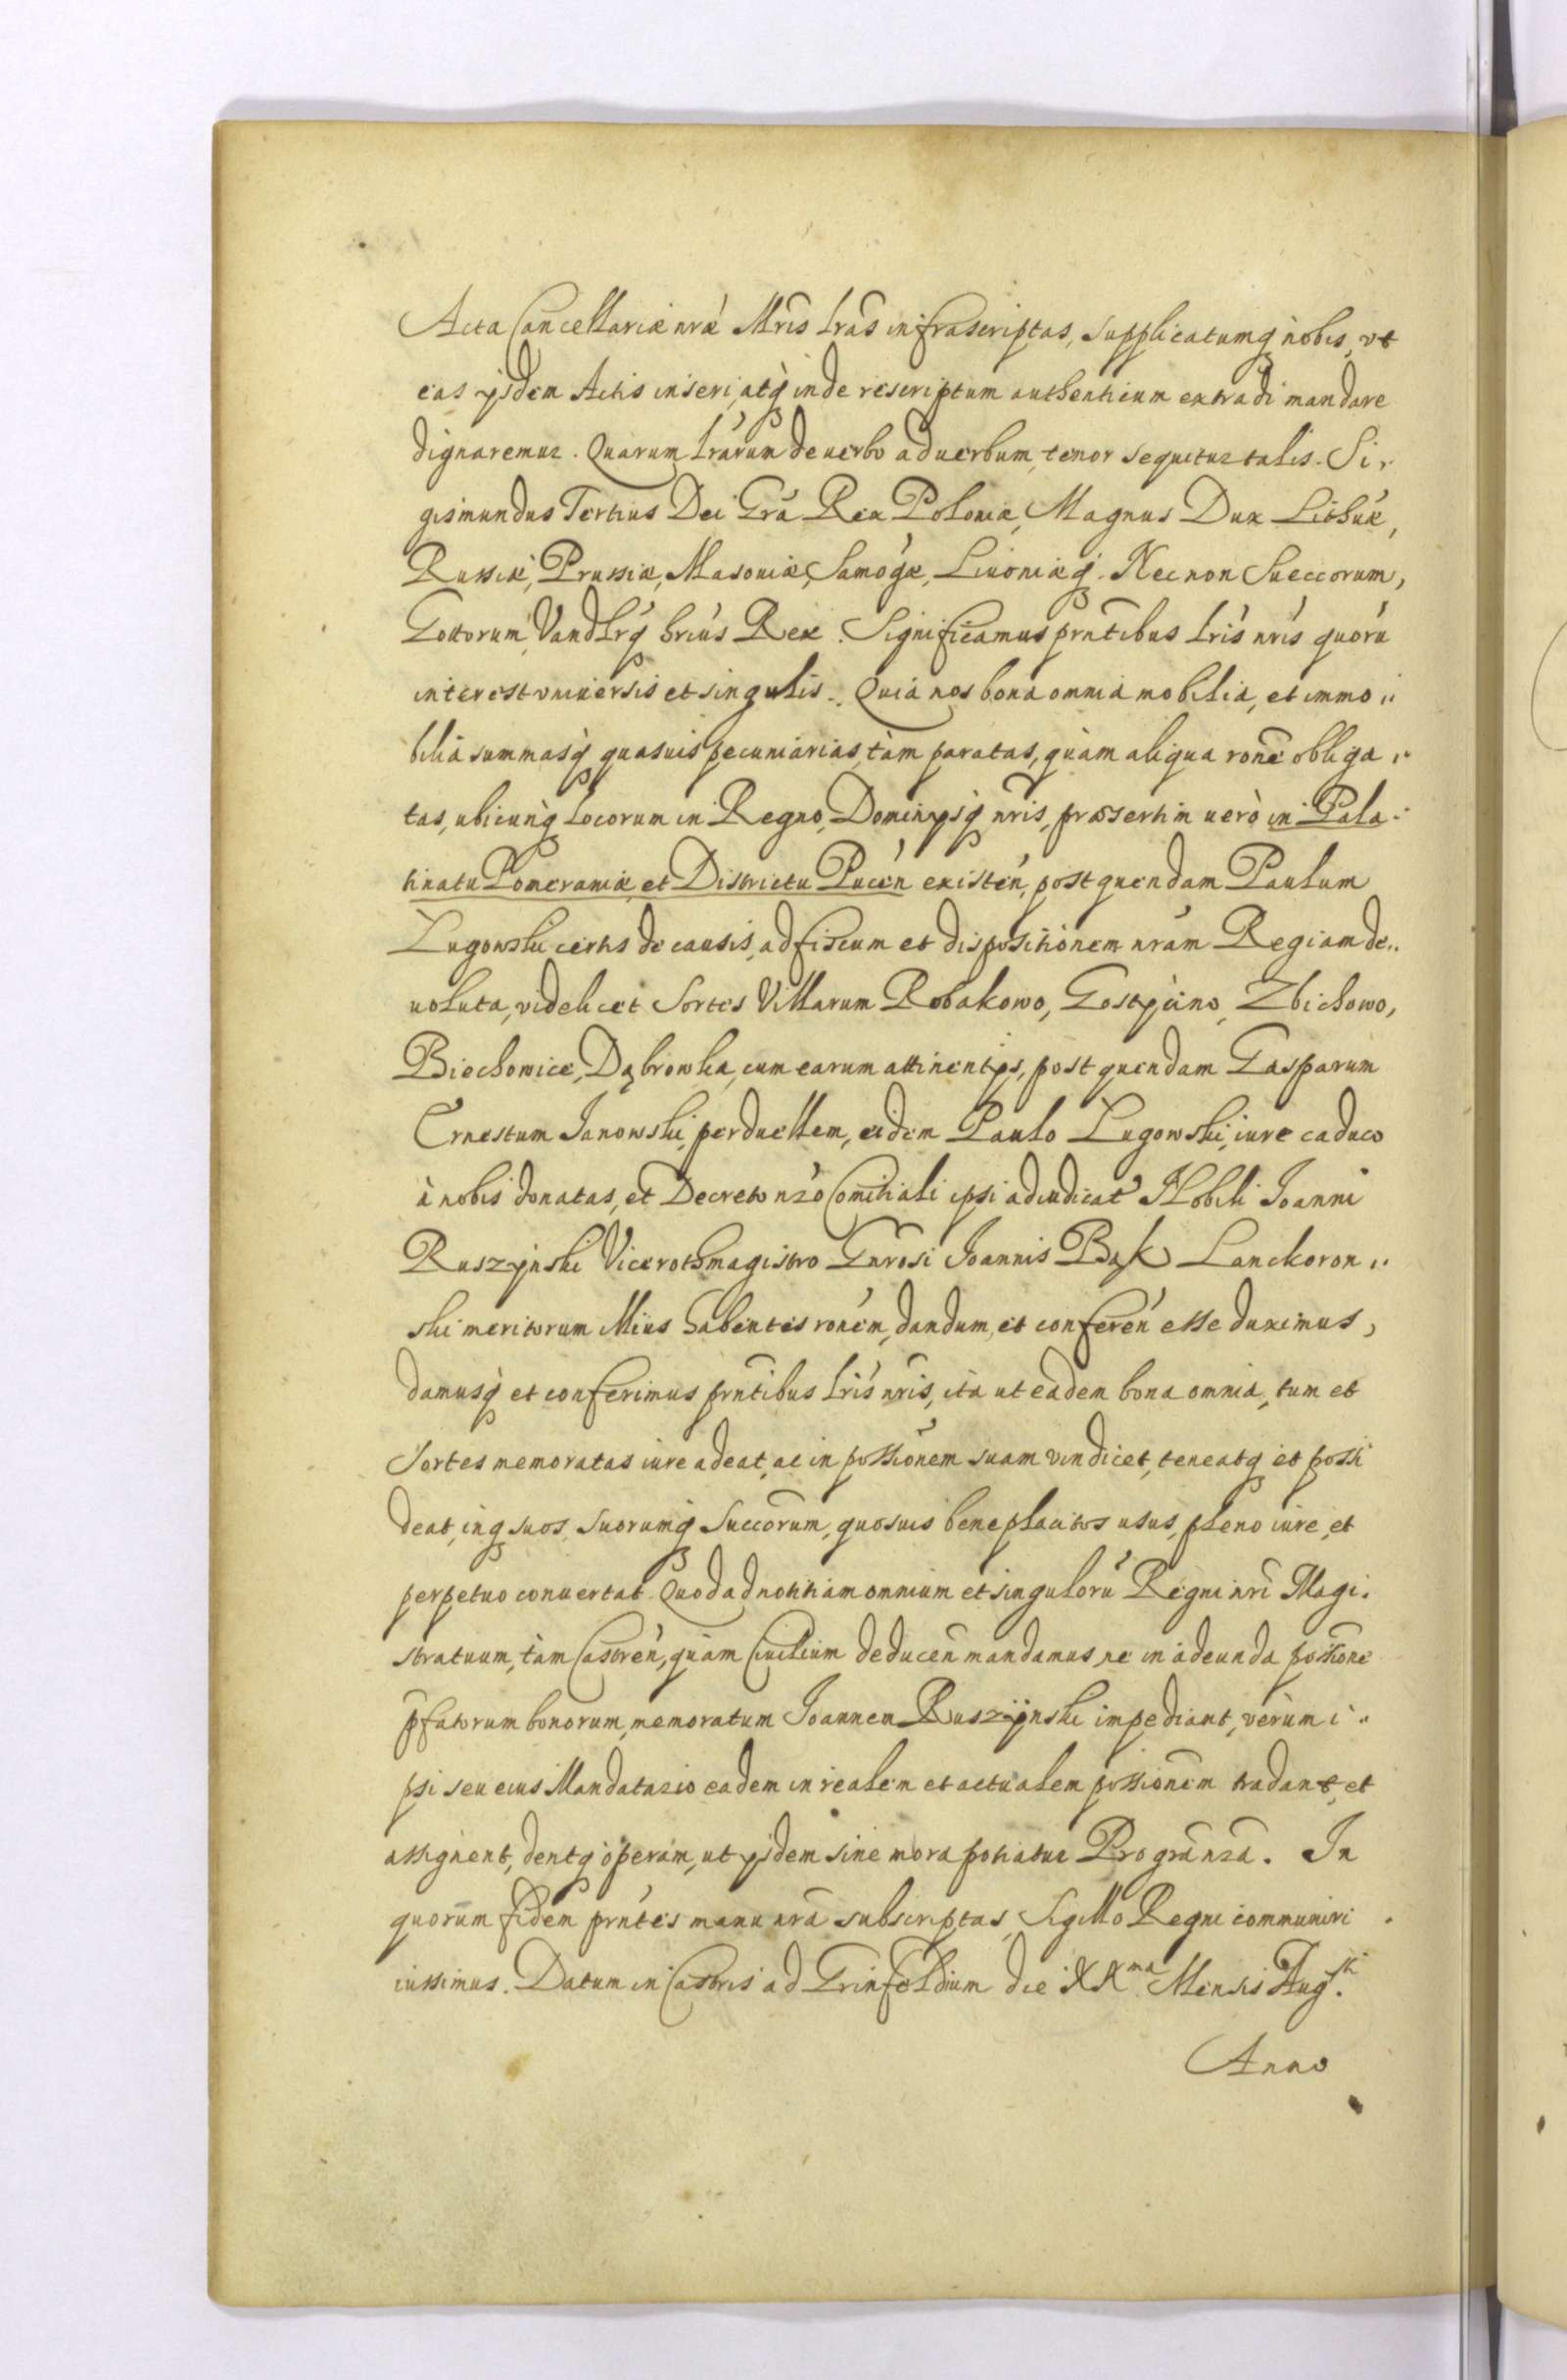 Acta Cancellariæ nræ Mris lras infrascriptas, supplicatumq nobis, vt
eas ysdem Actis inseri, atq inde rescriptum authenticum extradi mandare
dignaremur. Quarum lrarum de uerbo ad uerbum, tenor sequitur talis. Si,
gismundus Tertius Dei Gra Rex Poloniæ, Magnus Dux Lithuæ,
Russiæ, Prussiæ, Masouiæ, Samogæ, Liuoniæq. Nec non Sueccorum,
Gottorum, Vandlrq hrius Rex. Significamus prntibus lris nris quoru
interest vniuersis et singulis. Quia nos bona omnia mobilia, et immo„
bilia summasq quasuis pecuniarias, tàm paratas, quàm aliqua rone obliga„
tas, ubicunq locorum in Regno, Dominysq nris, præsertim uerò in Pala„
tinatu Pomeraniæ, et Districtu Pucen existen, post quendam Paulum
Lugowski certis de causis, ad fiscum et dispositionem nram Regiam de„
uoluta, videlicet Sortes Villarum Robakowo, Gostyćino, Zbichowo,
Biechowice, Dąbrowka, cum earum attinentys, post quendam Gasparum
Ernestum Janowski, perduellem, eidem Paulo Lugowski, iure caduco
à nobis donatas, et Decreto nro Comitiali ipsi adiudicat Nobili Joanni
Ruszynski Vicerothmagistro Gnrosi Joannis Bąk Lanckoron„
ski meritorum illius habentes ronem, dandum, et conferen esse duximus,
damusq et conferimus prntibus lris nris, ita ut eadem bona omnia, tum et
Sortes memoratas iure adeat, ac in possionem suam vindicet, teneatq et possi
deat, inq suos, suorumq Succorum, quosuis beneplacitos usus, pleno iure, et
perpetuo conuertat. Quod ad notitiam omnium et singuloru Regni nri Magi„
stratuum, tàm Castren, quàm Ciuilium deducen mandamus, ne in adeunda possione
pfatorum bonorum, memoratum Joannem Ruszÿnski impediant, verùm i„
psi seu eius Mandatario eadem in realem et actualem possionem tradant, et
assignent, dentq operam, ut ysdem sine mora potiatur Pro gra nra. In
quorum fidem prntes manu nra subscriptas, Sigillo Regni communiri
iussimus. Datum in Castris ad Grinfeldium die XXma Mensis Augsti.
Anno